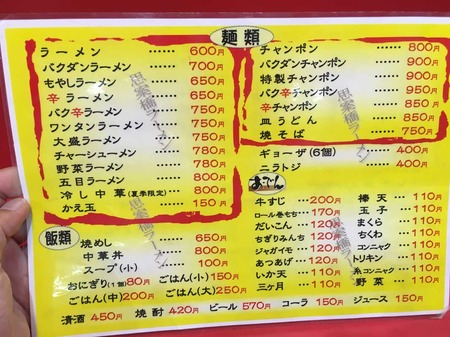 麺類
ラーメン …… 600円
バクダンラーメン …… 700円
もやしラーメン …… 650円
辛ラーメン …… 650円
バク辛ラーメン …… 750円
ワンタンラーメン …… 750円
大盛ラーメン …… 750円
チャーシューメン
野菜ラーメン
五目ラーメン
冷し中華(夏季限定)
かえ玉 …… 150円
思案橋ラーメン
チャンポン …… 800円
バクダンチャンポン …… 900円
特製チャンポン …… 900円
バク辛チャンポン …… 950円
辛チャンポン …… 850円
皿うどん …… 850円
焼そば …… 750円
思案橋ラーメン
ギョーザ(6個) …… 400円
ニラトジ …… 400円
飯類
焼めし …… 650円
中華丼 …… 800円
スープ(小) …… 100円
おにぎり(1個) 80円 ごはん(小) 150円
ごはん(中) 200円 ごはん(大) 250円
思案橋ラーメン
おでん
牛すじ … 200円 棒天 … 110円
ロール巻もち … 170円 玉子 … 110円
だいこん … 120円 まくら … 110円
ちぎりみんち … 120円 ちくわ … 110円
ジャガイモ … 120円 コンニャク … 110円
あつあげ … 110円 トリキン … 110円
いか天 … 110円 糸コンニャク … 110円
三ヶ月 … 110円 野菜 … 110円
思案橋ラーメン
清酒 450円 焼酎 420円 ビール 570円 コーラ 150円 ジュース 150円